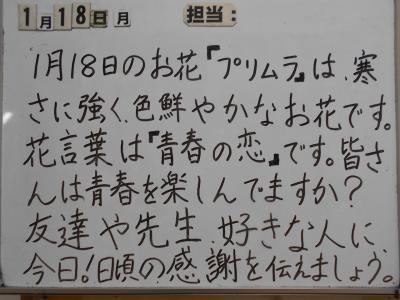 1月18日月 担当:
1月18日のお花『プリムラ』は、寒
さに強く、色鮮やかなお花です。
花言葉は『青春の恋』です。皆さ
んは青春を楽しんでますか?
友達や先生、好きな人に、
今日!日頃の感謝を伝えましょう。